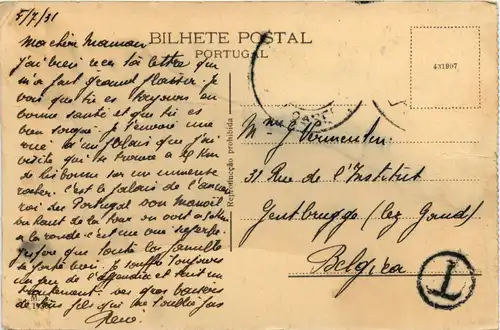 5/7/31
BILHETE POSTAL
PORTUGAL
431997
Ma chère Maman
J'ai bien reçu ta lettre qui
m'a fait grand plaisir. Je
vois que tu es toujours en
bonne santé et que tu es
bien soignée. Je t'envoie une
vue d'un palais que j'ai
visité qui se trouve à 28 km
de Lisbonne sur un immense
rocher. C'est le palais de l'ancien
roi du Portugal Don Manoël
du haut de la tour on voit
à la ronde. C'est une vue superbe.
J'espère que toute la famille
se porte bien. Je souffre toujours
un peu de l'appendice et suis un
traitement. Des gros baisers
de ton fils qui ne t'oublie pas
René
Reproducção prohibida
Mme G. Vermeulen
31 Rue de l'Institut
Gentbrugge (lez Gand)
Belgica
T